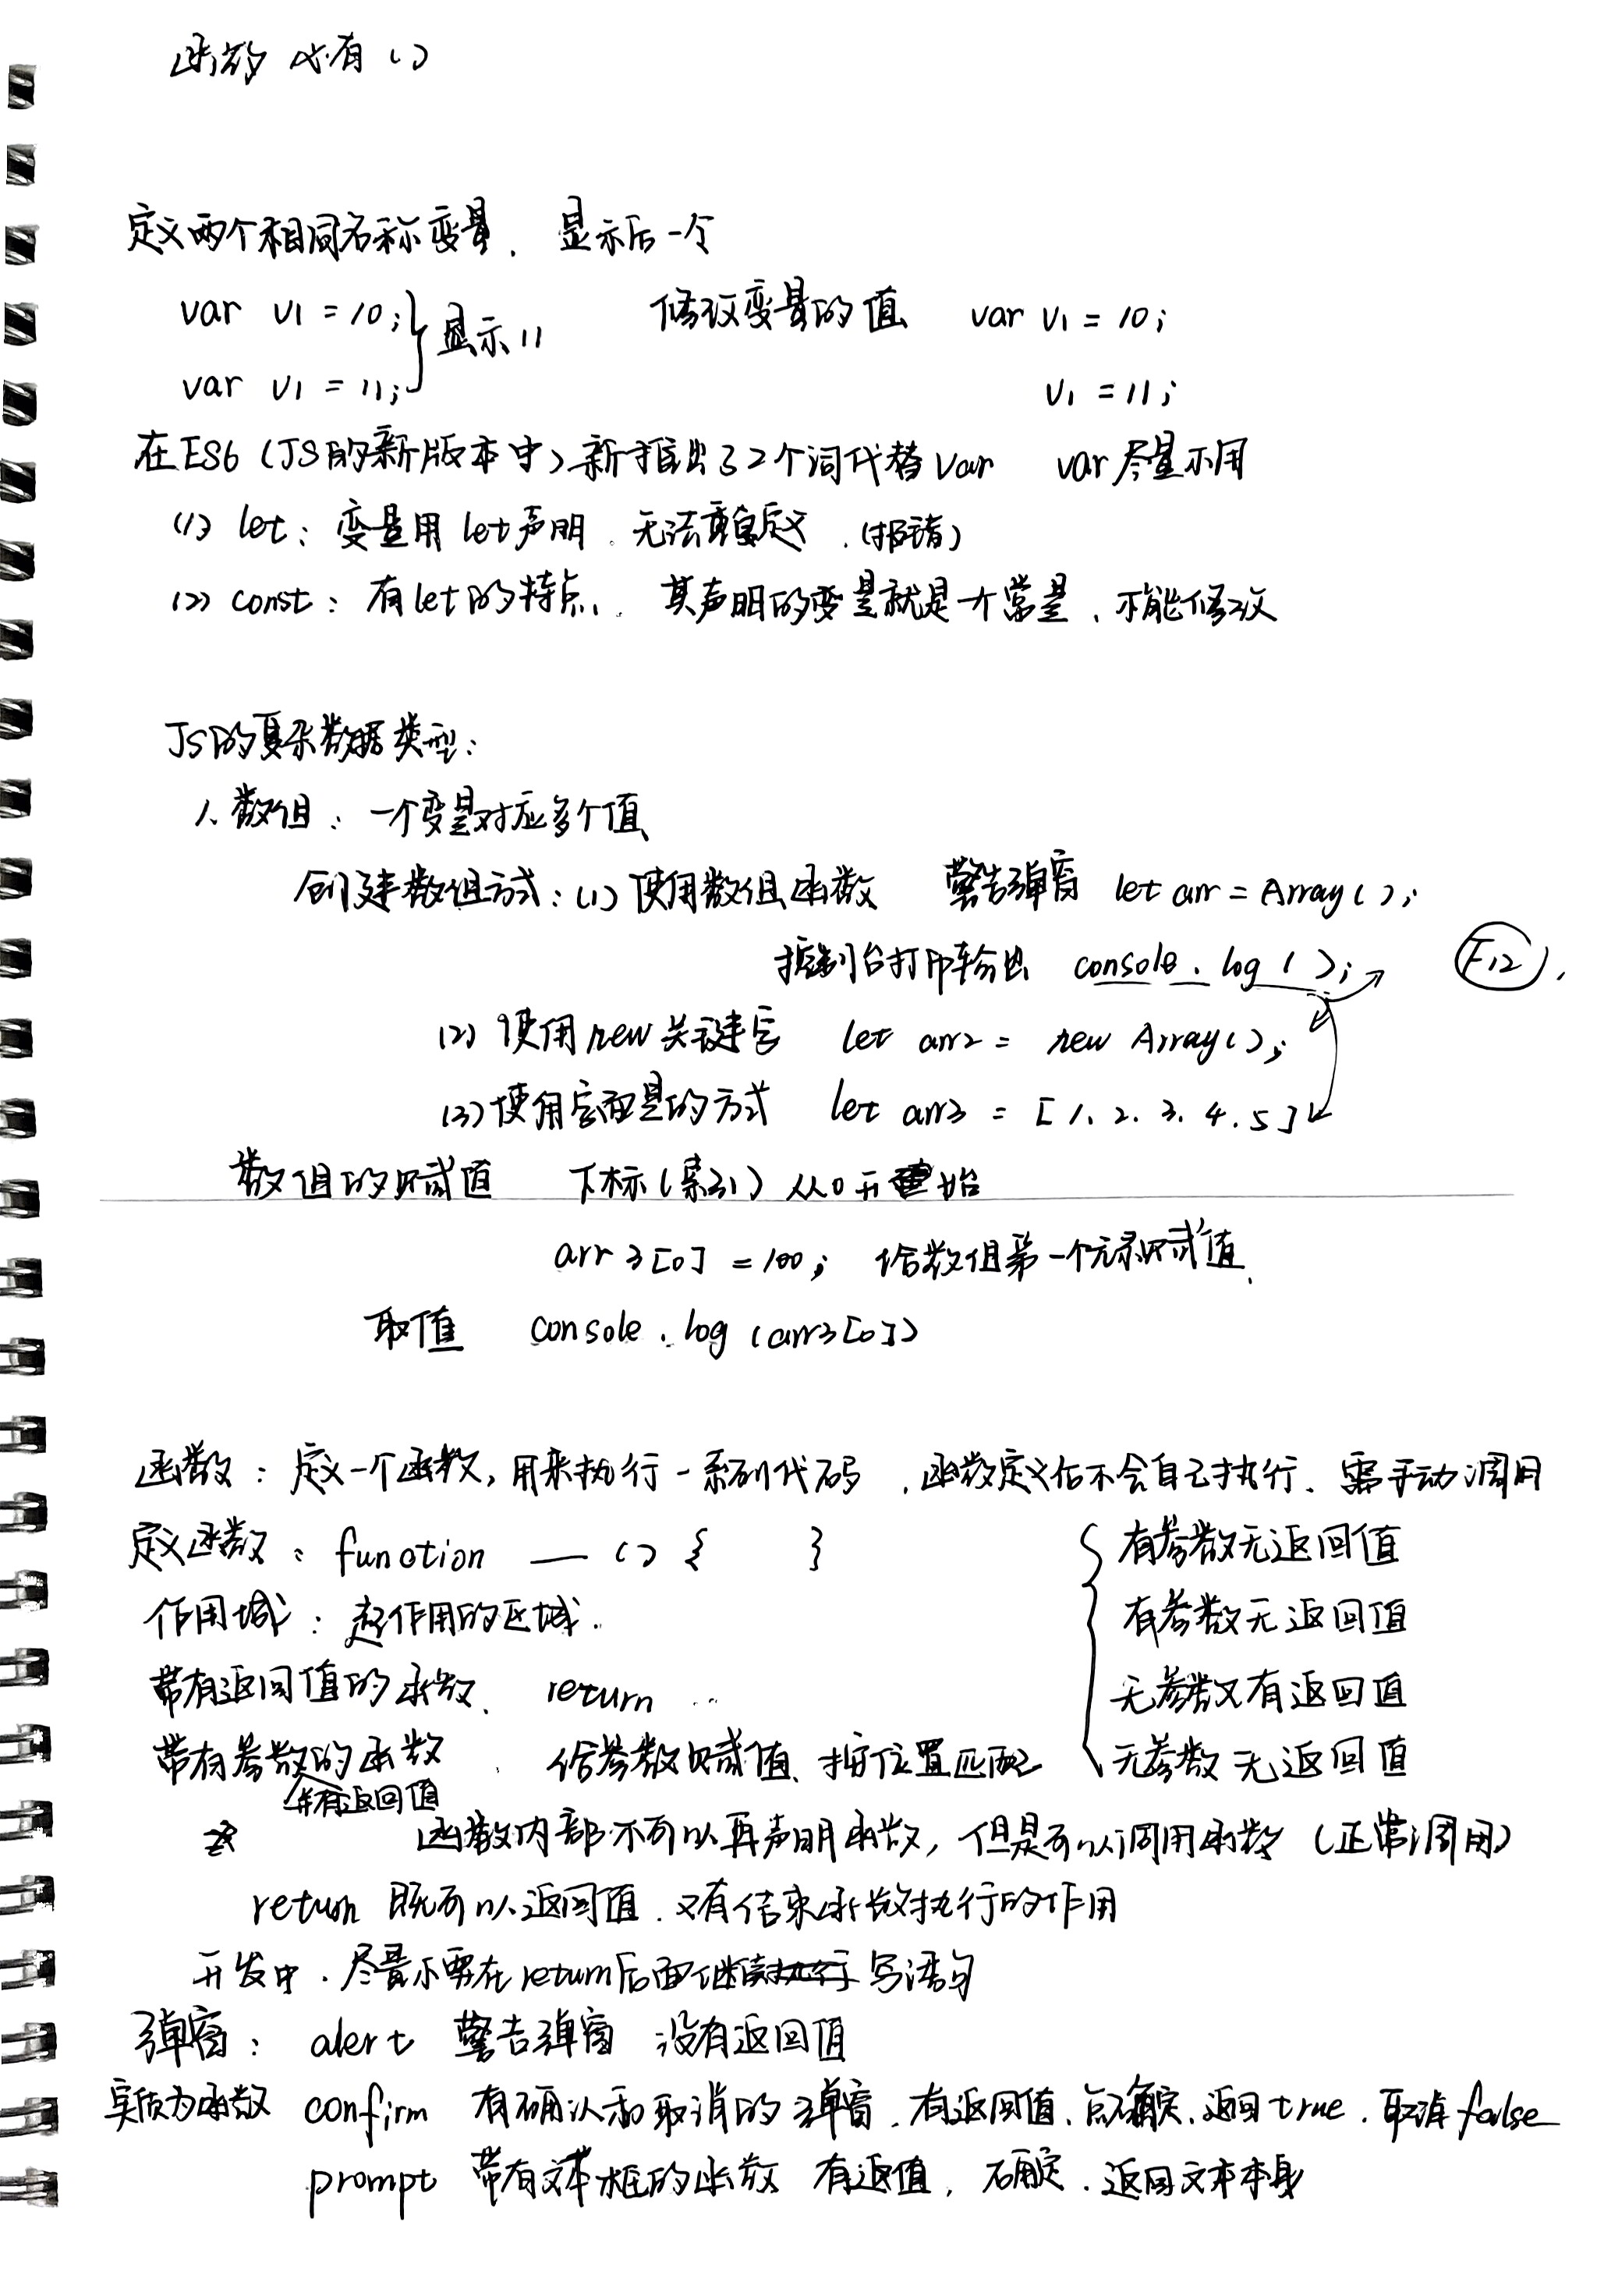 函数 必有()
定义两个相同名称变量. 显示后一个
var v1 = 10;
var v1 = 11; } 显示11
修改变量的值 var v1 = 10;
v1 = 11;
在ES6(JS的新版本中)新推出了2个词代替var var尽量不用
(1) let: 变量用let声明. 无法重复定义.(报错)
(2) const: 有let的特点. 其声明的变量就是一个常量、不能修改
JS的复杂数据类型:
1. 数组: 一个变量对应多个值
创建数组方式:(1)使用数组函数 警告弹窗 let arr = Array();
控制台打印输出 console.log(); F12.
(2) 使用new关键字 let arr2 = new Array();
(3) 使用字面量的方式 let arr3 = [1.2.3.4.5]
数组的赋值 下标(索引)从0开始
arr3[0] = 100; 给数组第一个元素赋值.
取值 console.log(arr3[0])
函数: 定义一个函数,用来执行一系列代码.函数定义后不会自己执行、需手动调用
定义函数: function — () { }
作用域: 起作用的区域.
带有返回值的函数. return ..
带有参数的函数. 给参数赋值、按位置匹配
并有返回值
{ 有参数无返回值
有参数无返回值
无参数有返回值
无参数无返回值
函数内部不可以再声明函数,但是可以调用函数(正常调用)
return 既可以返回值.又有结束函数执行的作用
开发中.尽量不要在return后面继续写语句
弹窗: alert 警告弹窗 没有返回值
实质为函数 confirm 有确认和取消的弹窗.有返回值、点确定、返回true.取消false
prompt 带有文本框的函数 有返值, 确定.返回文本本身